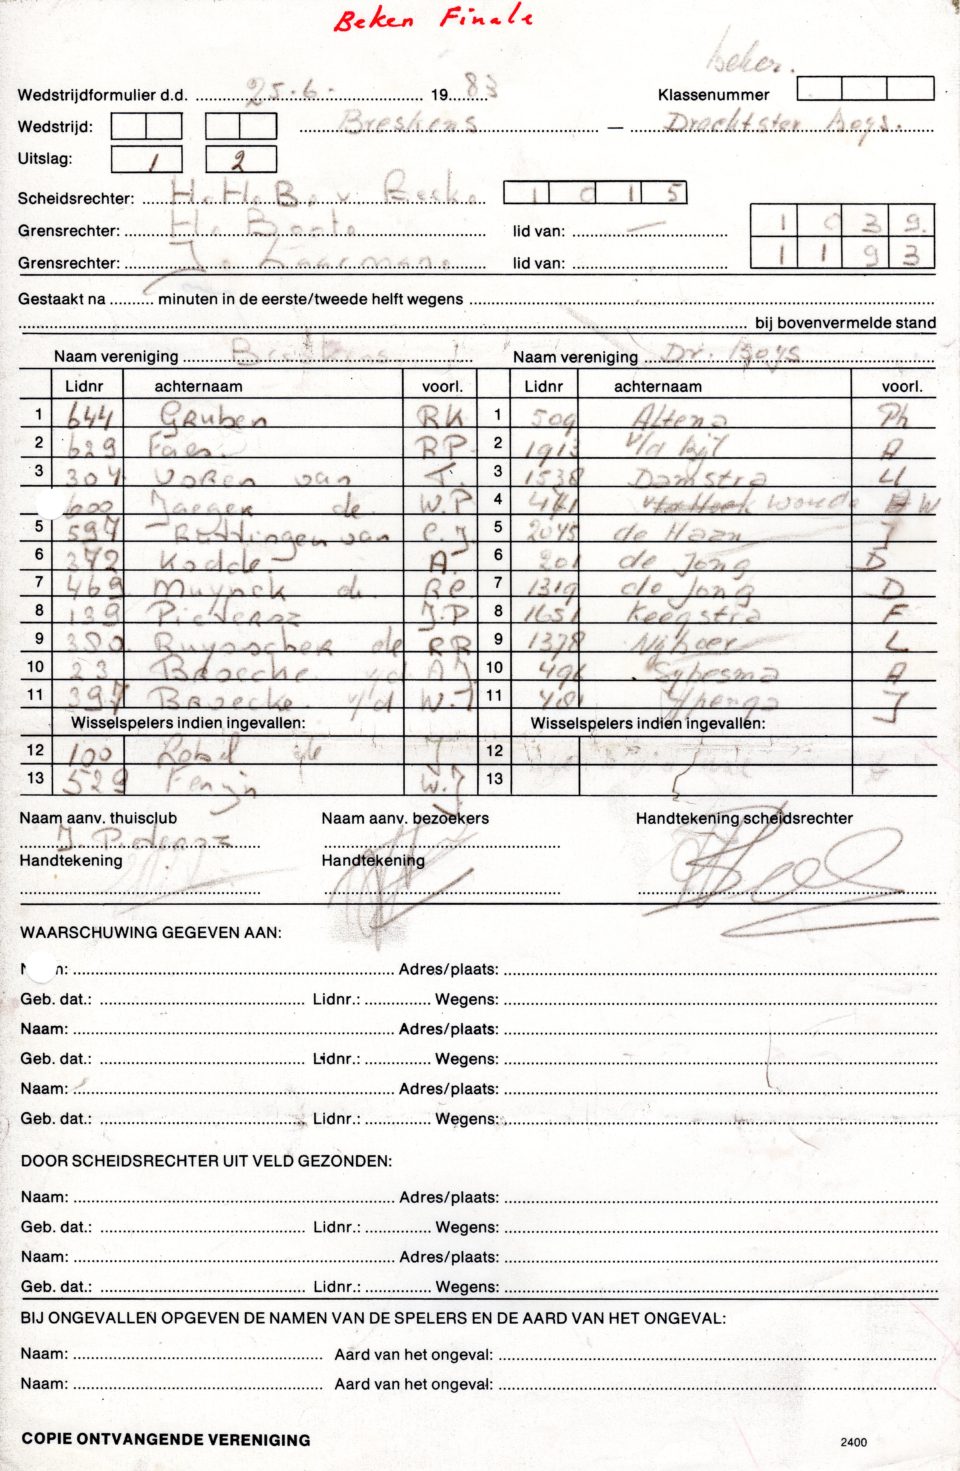 Beken Finale
beker.
Wedstrijdformulier d.d. 25.6. 1983 Klassenummer
Wedstrijd: Breskens — Drachtster boys.
Uitslag: 1 2
Scheidsrechter: 1015
Grensrechter: lid van: — 1039
Grensrechter: lid van: 1193
Gestaakt na minuten in de eerste/tweede helft wegens
bij bovenvermelde stand
Naam vereniging Breskens Naam vereniging Dr. Boys
Lidnr achternaam voorl. Lidnr achternaam voorl.
1 644 Gruben RK 1 509 Altena Ph
2 629 Faes. RP. 2 1913 v/d Bijl A
3 304 van T. 3 1538 Damstra U
600 Jaeger de W.P 4 woude W
5 597 van C.J. 5 2045 de Haan J
6 372 Kodde. A. 6 201 de Jong D
7 469 Muynck d. RC 7 1319 de Jong D
8 139 Pieterse J.P 8 1651 Keegstra F
9 380 Ruysscher de RR 9 1378 L
10 23 Broecke v/d AJ 10 496 Sypesma A
11 397 Broecke v/d W.J 11 481 Ypenga J
Wisselspelers indien ingevallen: Wisselspelers indien ingevallen:
12 100 J 12
13 529 Fenijn W.J 13
Naam aanv. thuisclub Naam aanv. bezoekers Handtekening scheidsrechter
J. Pieterse
Handtekening Handtekening
WAARSCHUWING GEGEVEN AAN:
Adres/plaats:
Geb. dat.: Lidnr.: Wegens:
Naam: Adres/plaats:
Geb. dat.: Lidnr.: Wegens:
Naam: Adres/plaats:
Geb. dat.: Lidnr.: Wegens:
DOOR SCHEIDSRECHTER UIT VELD GEZONDEN:
Naam: Adres/plaats:
Geb. dat.: Lidnr.: Wegens:
Naam: Adres/plaats:
Geb. dat.: Lidnr.: Wegens:
BIJ ONGEVALLEN OPGEVEN DE NAMEN VAN DE SPELERS EN DE AARD VAN HET ONGEVAL:
Naam: Aard van het ongeval:
Naam: Aard van het ongeval:
COPIE ONTVANGENDE VERENIGING 2400